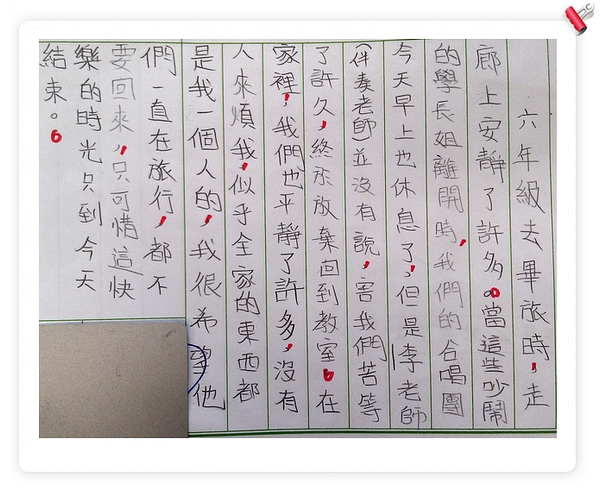 六年級去畢旅時，走
廊上安靜了許多。當這些吵鬧
的學長姐離開時，我們的合唱團
今天早上也休息了，但是李老師
(伴奏老師)並沒有說，害我們苦等
了許久，終於放棄回到教室。在
家裡，我們也平靜了許多，沒有
人來煩我，似乎全家的東西都
是我一個人的，我很希望他
們一直在旅行，都不
要回來，只可惜這快
樂的時光只到今天
結束。